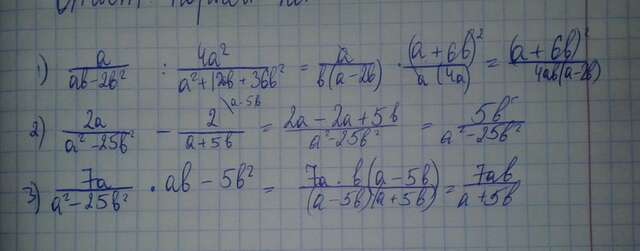 1) a/(ab-2b²) : 4a²/(a²+12ab+36b²) = a/(b(a-2b)) · (a+6b)²/(a(4a)) = (a+6b)²/(4ab(a-2b))
2) 2a/(a²-25b²) - 2\a-5b/(a+5b) = (2a-2a+5b)/(a²-25b²) = 5b/(a²-25b²)
3) 7a/(a²-25b²) · ab-5b² = (7a·b(a-5b))/((a-5b)(a+5b)) = 7ab/(a+5b)